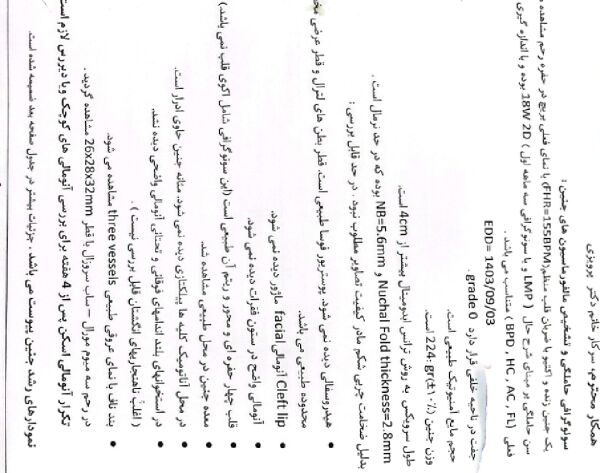 همکار محترم، سرکار خانم دکتر پرویزی
سونوگرافی حاملگی و تشخیص مالفورماسیون های جنین :
یک جنین زنده و اکتیو با ضربان قلب منظم(FHR=155BPM) با نمای فعلی بریچ در حفره رحم مشاهده
سن حاملگی بر مبنای شرح حال ( LMP و یا سونوگرافی سه ماهه اول ) 18W 2D بوده و با اندازه گیری
فعلی ( BPD , HC , AC , FL) متناسب می باشد .
EDD= 1403/09/03
جفت در ناحیه خلفی قرار دارد grade 0 .
حجم مایع آمنیوتیک طبیعی است.
وزن جنین 224 gr(±۱۰٪) است.
طول سرویکس به روش ترانس ابدومینال بیشتر از 4cm است.
Nuchal Fold thickness=2.8mm و NB=5.6mm بوده که در حد نرمال است .
بدلیل ضخامت چربی شکم مادر کیفیت تصاویر مطلوب نبود. در حد قابل بررسی :
هیدروسفالی دیده نمی شود. پوستریور فوسا طبیعی است. قطر بطن های لترال و قطر عرضی
محدوده طبیعی می باشد.
Cleft lip آنومالی facial ماژور دیده نمی شود.
آنومالی واضح در ستون فقرات دیده نمی شود.
قلب چهار حفره ای و محور و ریتم آن طبیعی است (این سونوگرافی شامل اکوی قلب نمی باشد.)
معده جنین در محل طبیعی مشاهده شد.
در محل آناتومیک کلیه ها پیلکتازی دیده نمی شود. مثانه جنین حاوی ادرار است.
در استخوانهای بلند اندامهای فوقانی و تحتانی آنومالی واضحی دیده نشد.
( اغلب ناهنجاریهای انگشتان قابل بررسی نیست ) .
بند ناف با نمای عروقی طبیعی three vessels مشاهده می شود.
در رحم سه میوم مورال – ساب سروزال با قطر 26x28x32mm مشاهده گردید.
تکرار آنومالی اسکن پس از 4 هفته برای بررسی آنومالی های کوچک ویا دیررس لازم است
نمودارهای رشد جنین پیوست می باشد . جزئیات بیشتر در جدول صفحه بعد ضمیمه شده است.